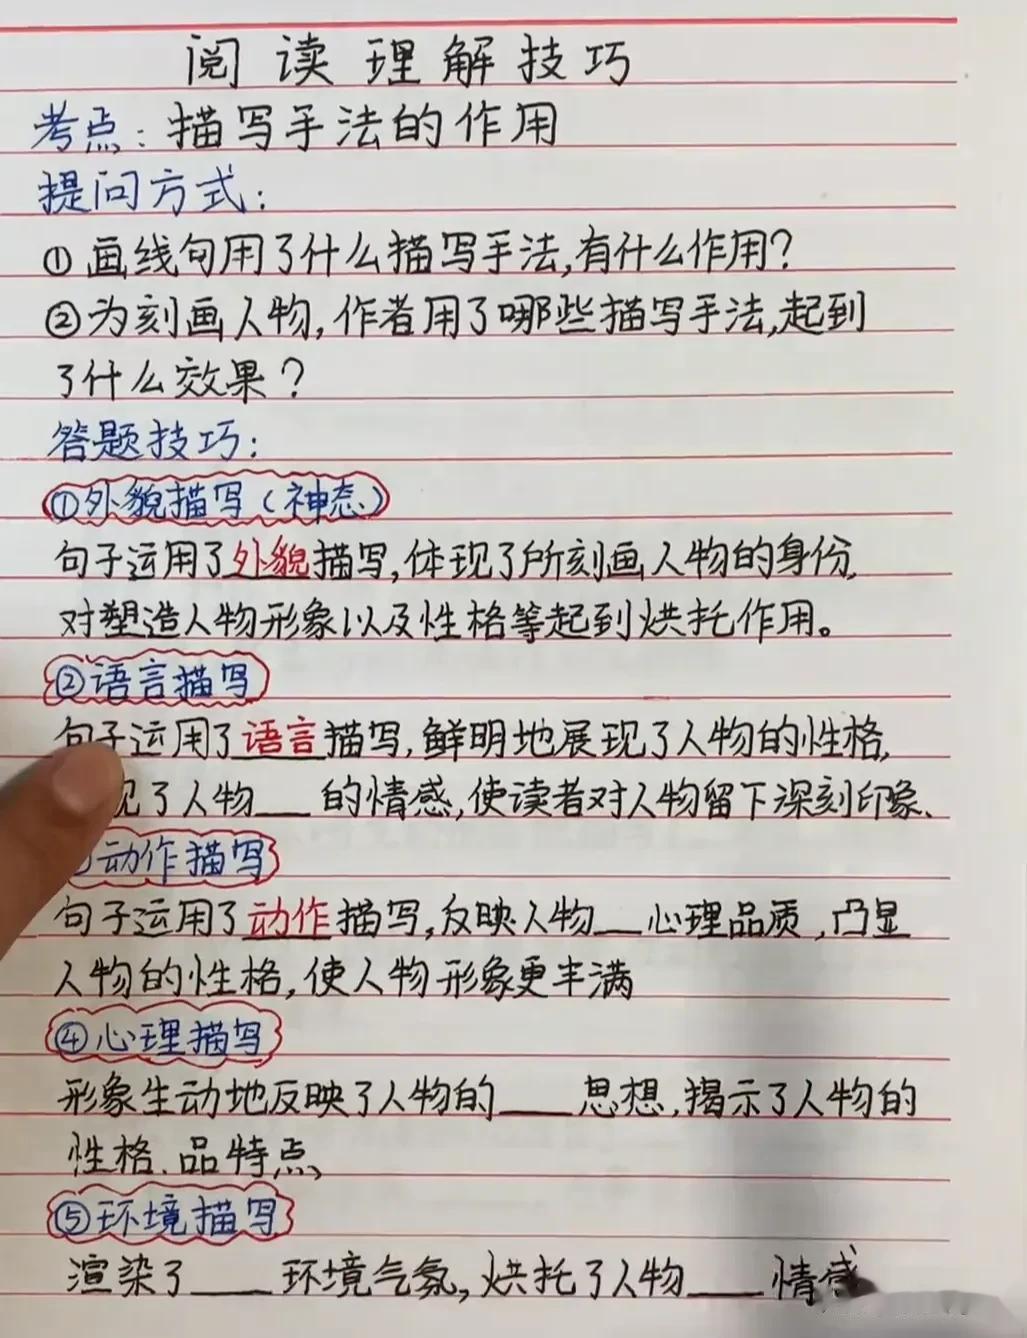 阅读理解技巧
考点:描写手法的作用
提问方式:
①画线句用了什么描写手法,有什么作用?
②为刻画人物,作者用了哪些描写手法,起到
了什么效果?
答题技巧:
①外貌描写(神态)
句子运用了外貌描写,体现了所刻画人物的身份,
对塑造人物形象以及性格等起到烘托作用。
②语言描写
句子运用了语言描写,鲜明地展现了人物的性格,
现了人物___的情感,使读者对人物留下深刻印象、
动作描写
句子运用了动作描写,反映人物___心理品质,凸显
人物的性格,使人物形象更丰满
④心理描写
形象生动地反映了人物的___思想,揭示了人物的
性格、品特点、
⑤环境描写
渲染了___环境气氛,烘托了人物___情感